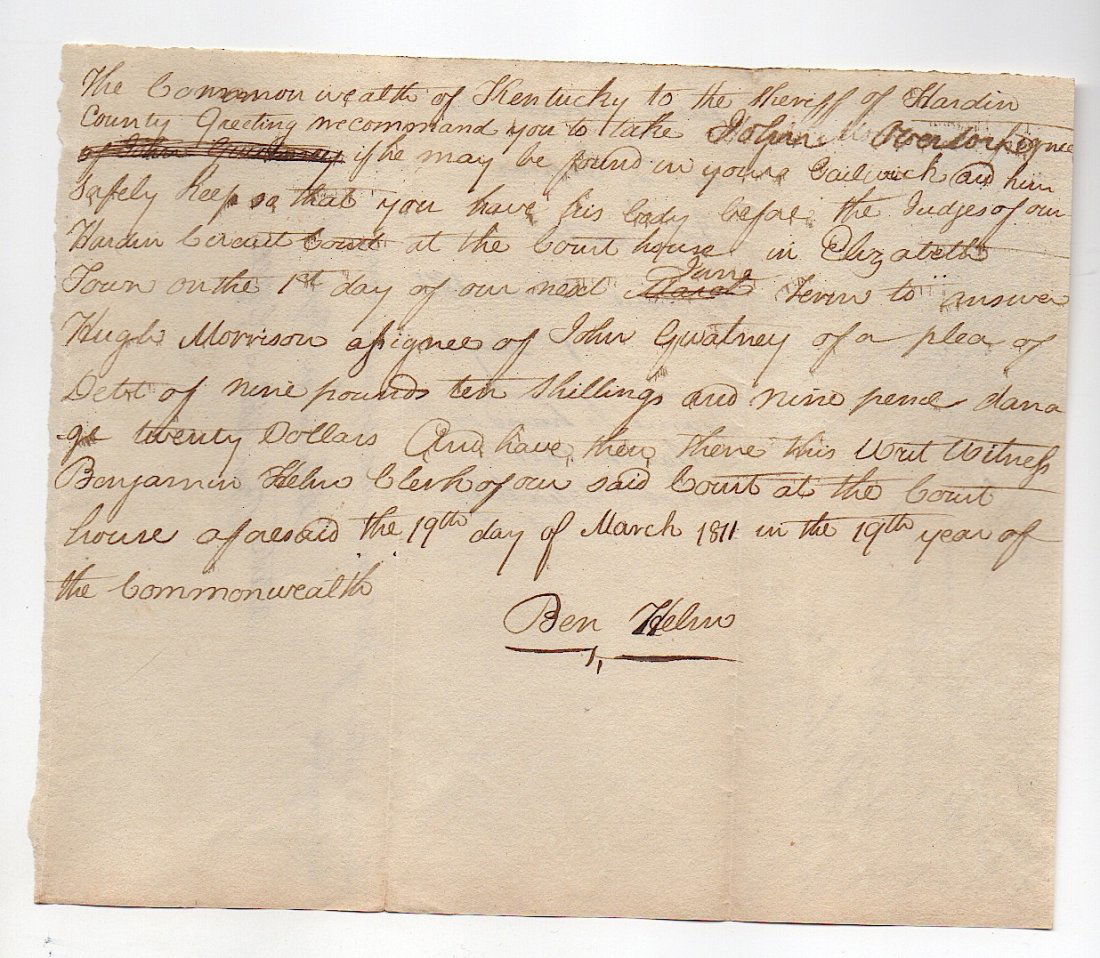 The Commonwealth of Kentucky to the Sheriff of Hardin
County Greeting we command you to take John
if he may be found in your Bailiwick and him
Safely Keep so that you have his body before the Judges of our
Hardin Circuit Court at the Court house in Elizabeth
Town on the 1st day of our next June Term to answer
Hugh Morrison assignee of John Gwatney of a plea of
Debt of nine pounds ten Shillings and nine pence dama
ge twenty Dollars And have then there this Writ Witness
Benjamin Helm Clerk of our said Court at the Court
house aforesaid the 19th day of March 1811 in the 19th year of
the Commonwealth
Ben Helm